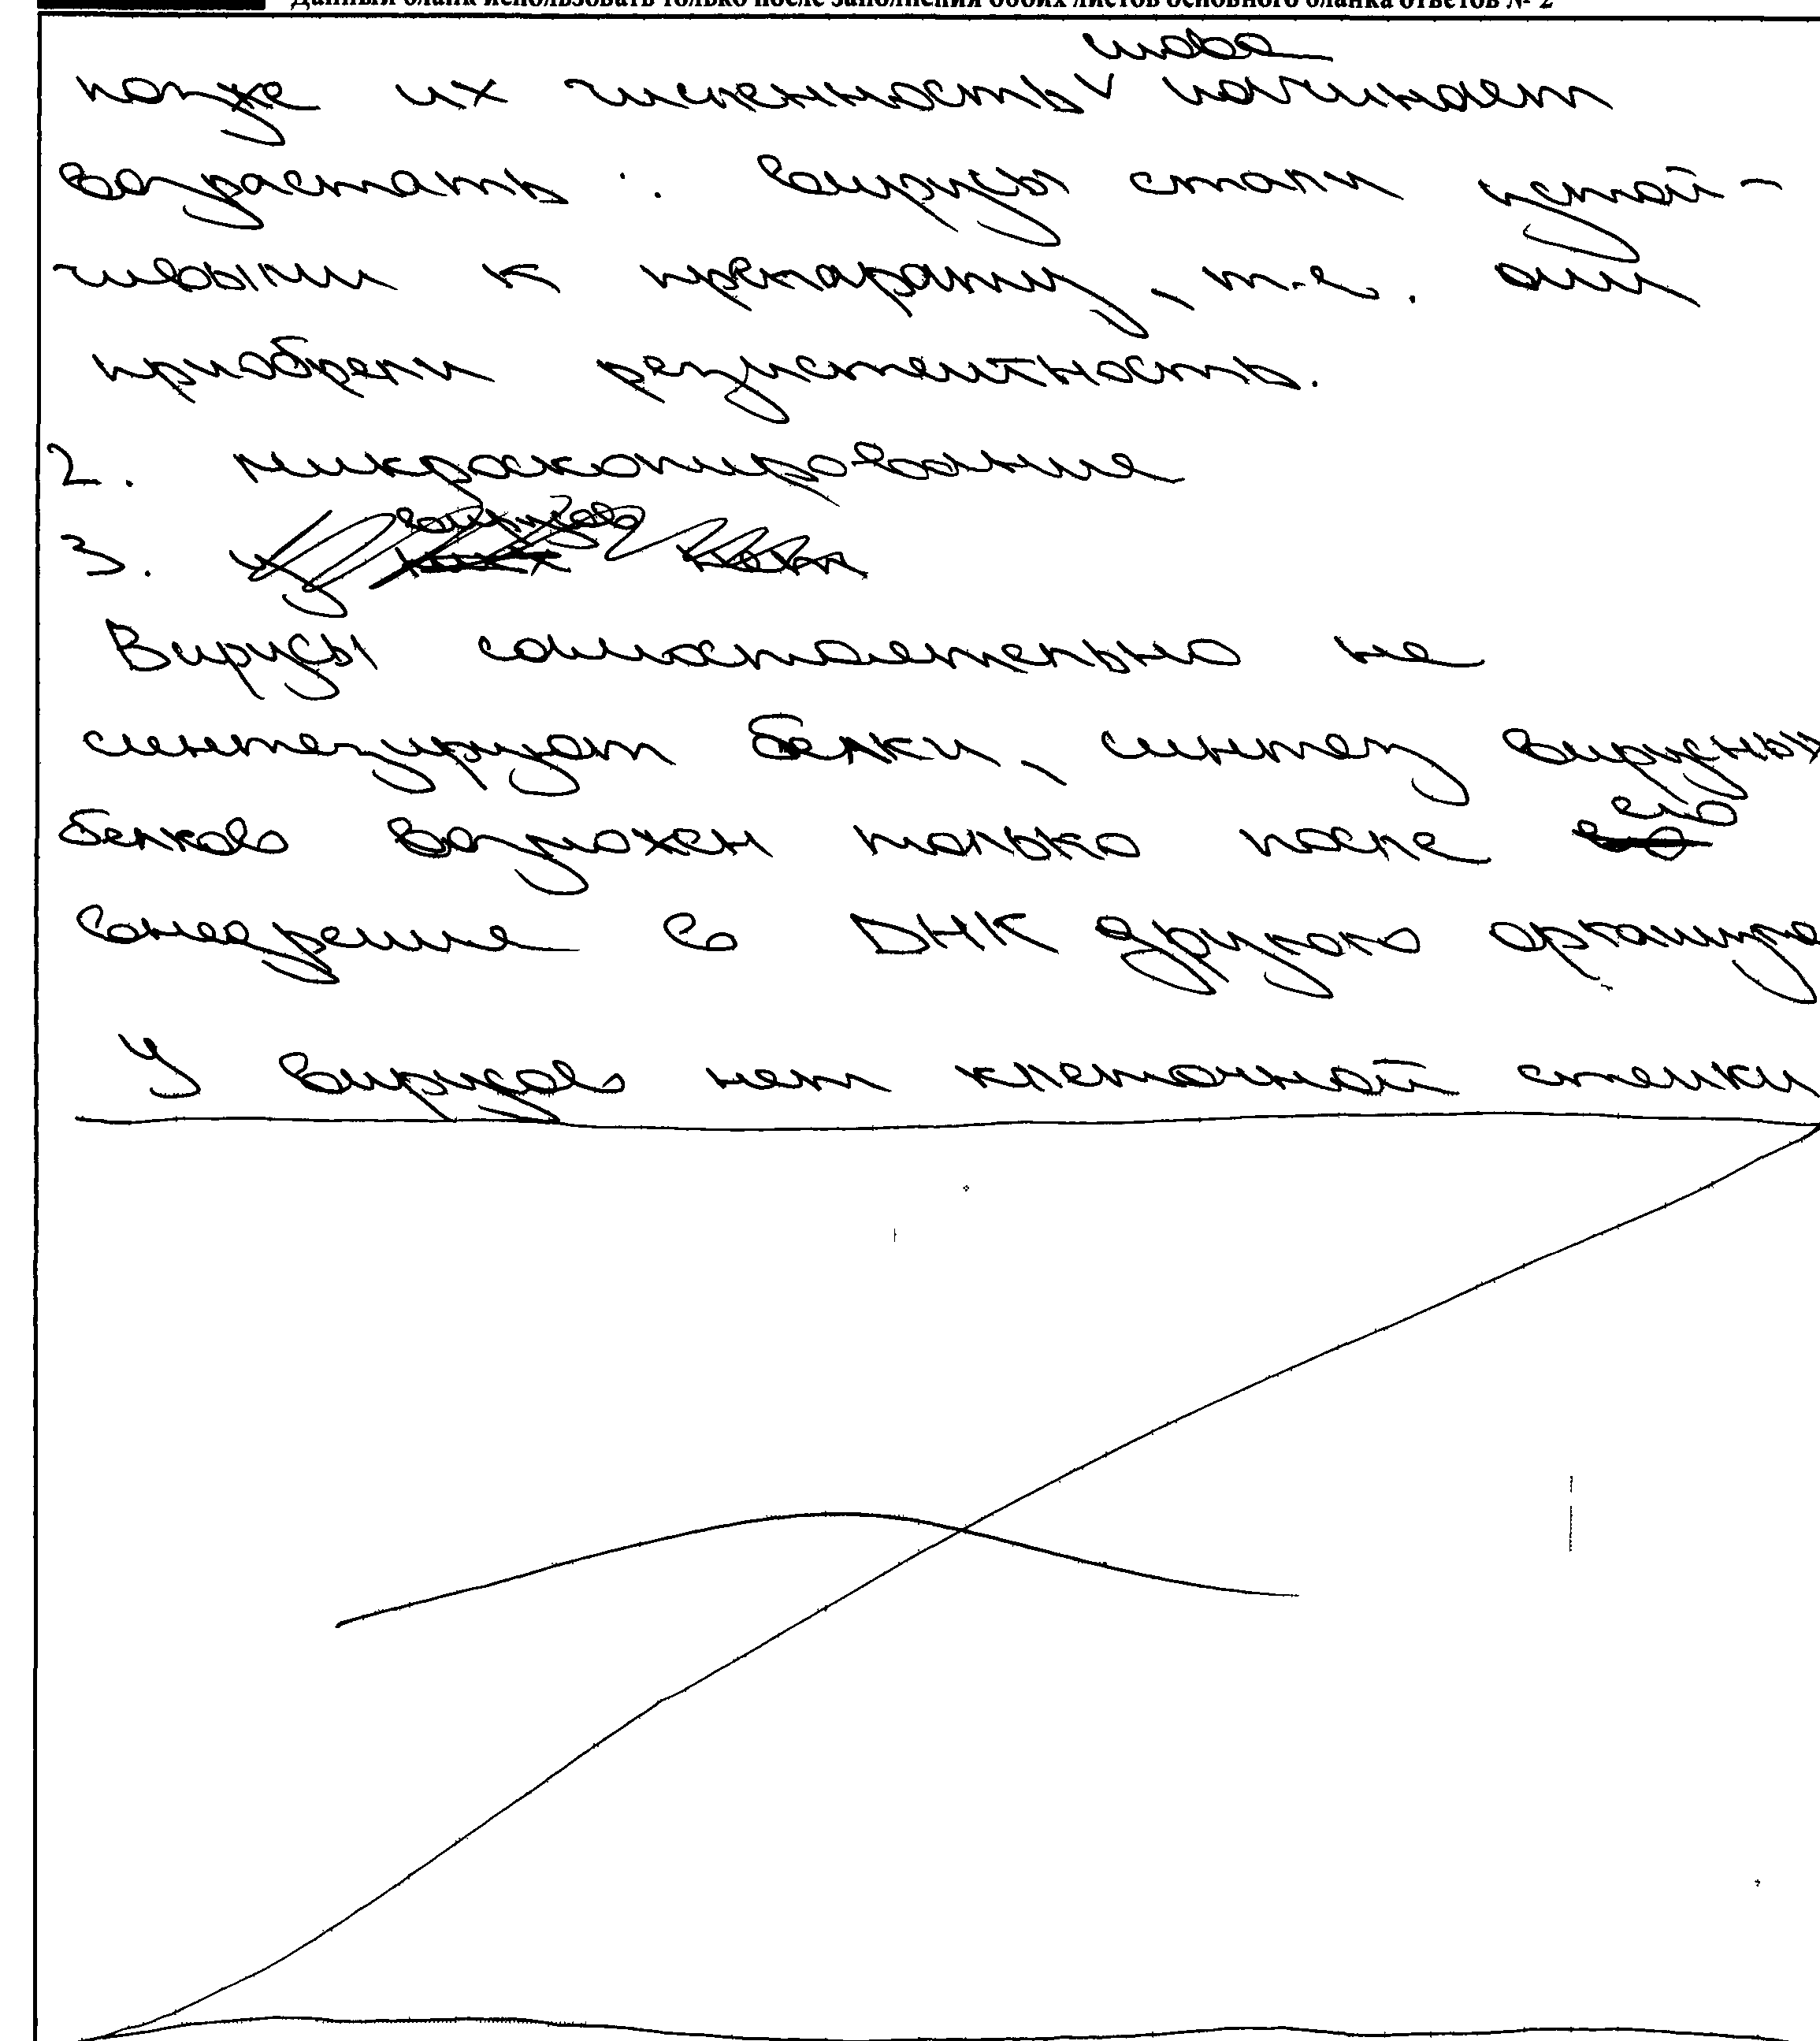 Данный бланк использовать только после заполнения обоих листов основного бланка ответов № 2
снова
позже их численность начинает
возрастать . вирусы стали устой-
чивыми к препарату, т.е. они
приобрели резистентность.
2. микроскопирование
3.
Вирусы самостоятельно не
синтезируют белки, синтез вирусных
белков возможен только после его
внедрения в ДНК другого организма
У вирусов нет клеточной стенки